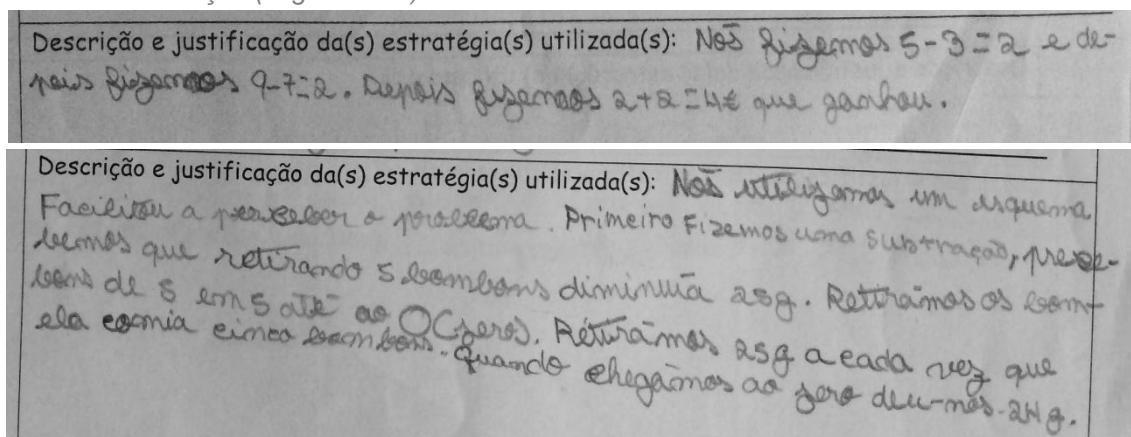 Descrição e justificação da(s) estratégia(s) utilizada(s): Nós fizemos 5-3=2 e de-
pois fizemos 9-7=2. Depois fizemos 2+2=4€ que ganhou.
Descrição e justificação da(s) estratégia(s) utilizada(s): Nós utilizamos um esquema
Facilitou a perceber o problema. Primeiro Fizemos uma subtração, prece-
bemos que retirando 5 bombons diminuía 25g. Retiramos os bom-
bons de 5 em 5 até ao 0 (zero). Retirámos 25g a cada vez que
ela comia cinco bombons. Quando chegámos ao zero deu-nos 24g.